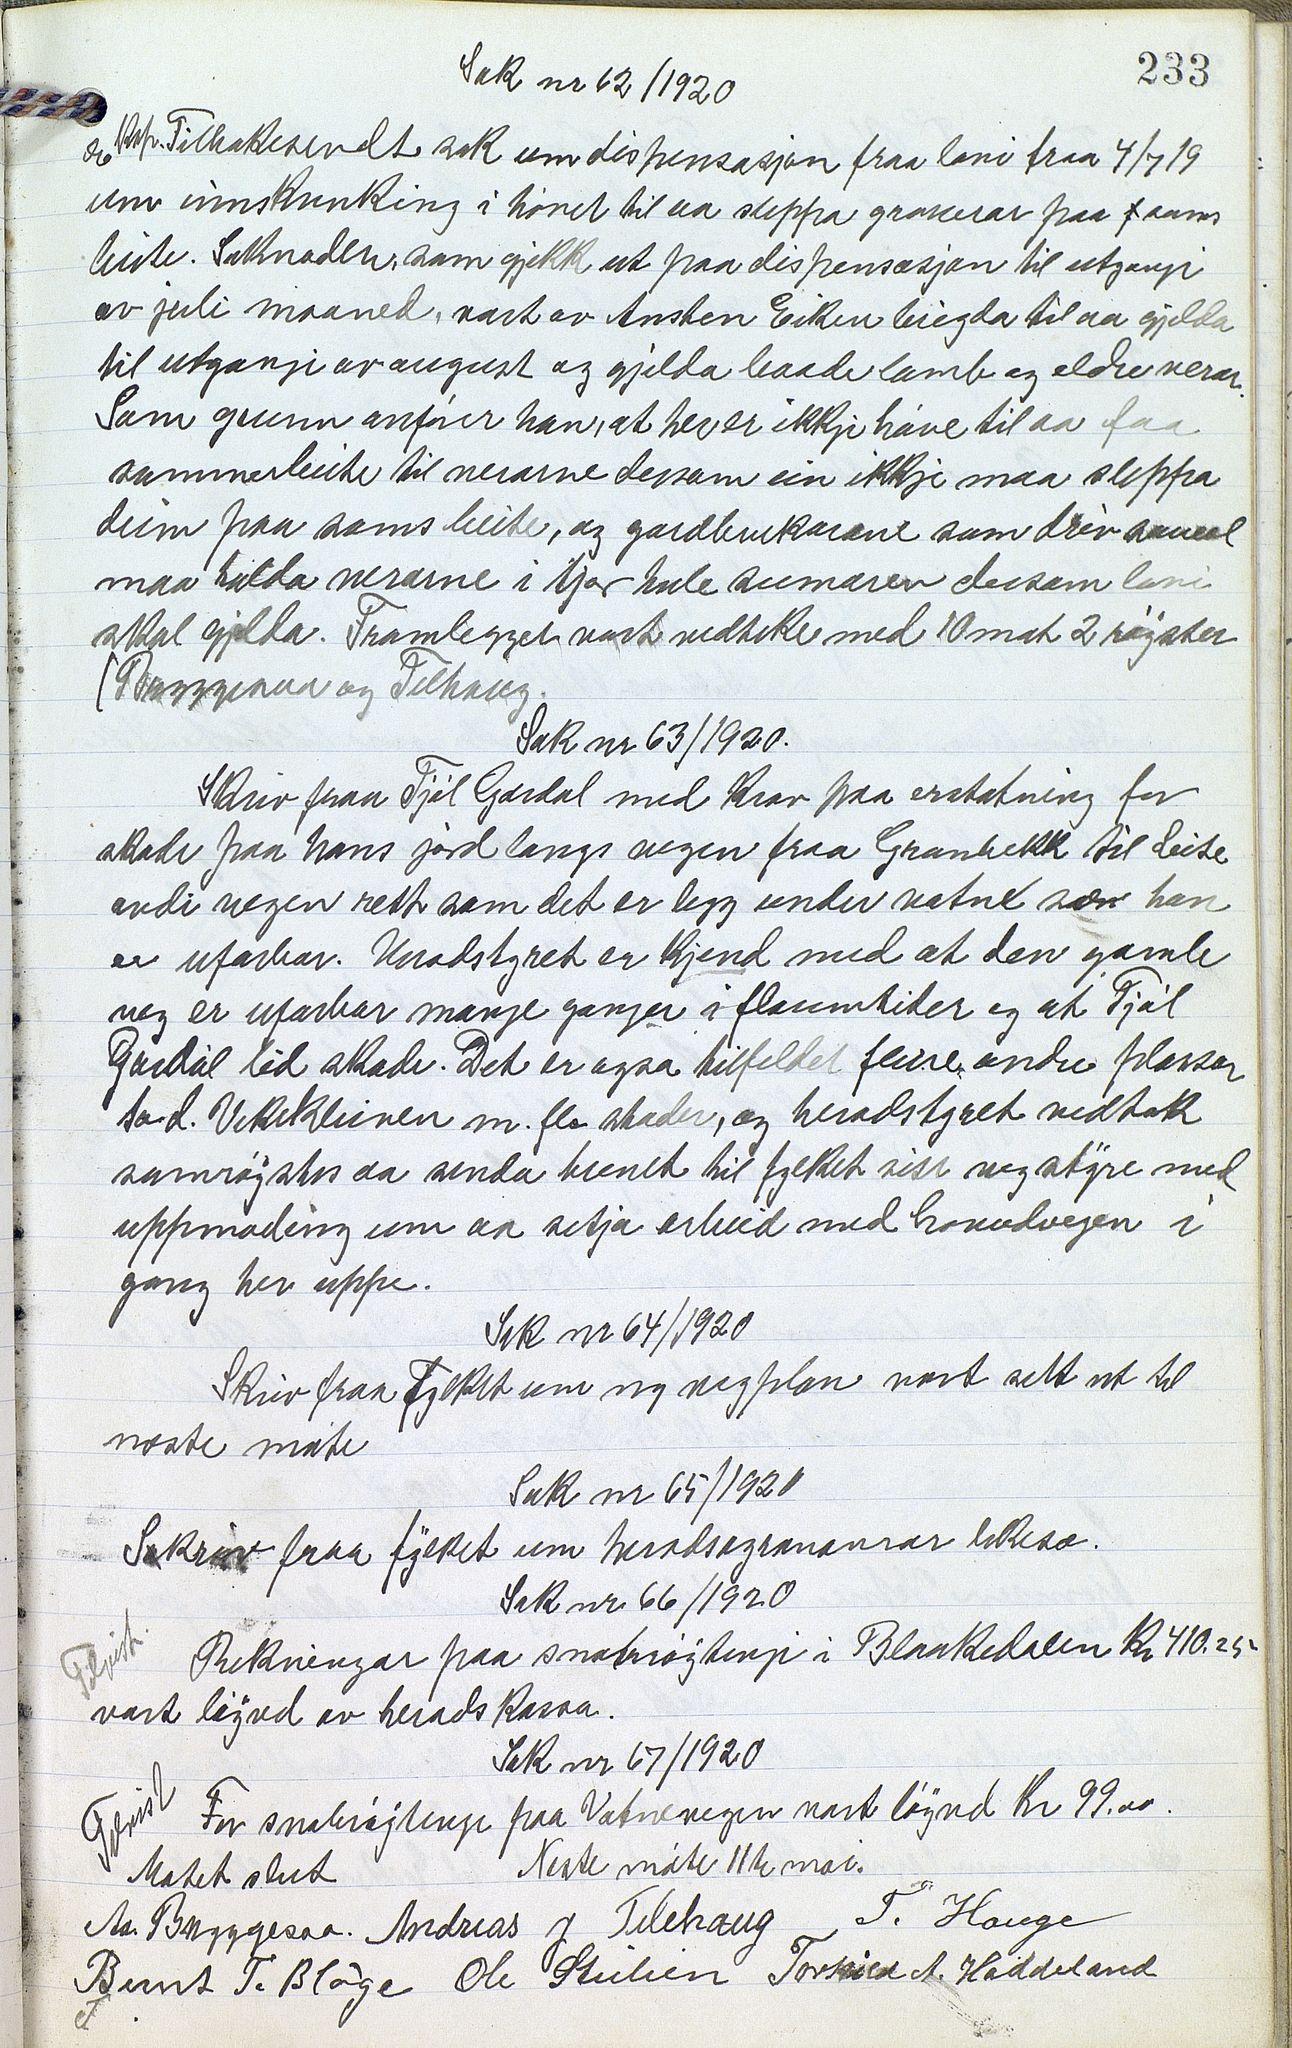 233
Sak nr 62/1920
Eksp. Tilbakesendt sak um dispensasjon fraa lovi fraa 4/7 19
um innskrenking i høvet til aa sleppa graverar paa sams
beite. Søknaden, som gjekk ut paa dispensasjon til utgangi
av juli maaned, vart av Ansten Eiken beigda til aa gjelda
til utgangi av august og gjelda baade lamb og eldre verar.
Som grunn anfører han, at her er ikkje høve til aa faa
sommerbeite til verarne dersom ein ikkje maa sleppa
deim paa sams beite, og gardbrukarane som driv saueal
maa halda verarne i hus hele sumaren dersom lovi
skal gjelda. Framlegget vart vedteke med 10 mot 2 røyster
(Bryggesaa og Tilehaug.
Sak nr 63/1920.
Skriv fraa Tjøl Gardal med krav paa erstatning for
skade paa hans jord langs vegen fraa Granbekk til Leite
avdi vegen rett som det er ligg under vatnet so han
er ufarbar. Heradstyret er kjend med at den gamle
veg er ufarbar mange ganger i flaumtider og at Tjøl
Gardal lid skade. Det er ogsaa tilfeldet fleire andre plassar
t.d. Vikekleiven m. fl. stader, og heradstyret vedtok
samrøystes aa senda brevet til fylket sitt vegstyre med
uppmoding um aa setja arbeid med hovudvegen i
gang her uppe.
Sak nr 64/1920
Skriv fraa Fylket um ny vegplan vart sett ut til
næste møte
Sak nr 65/1920
Skriv fraa fylket um heradsagronomar likeso.
Sak nr 66/1920
Tilvist. Rekningar paa snøbrøytingi i Blaakedalen Kr 410.25
vart løyvd av herads kassa.
Sak nr 67/1920
Tilvist For snøbrøytingi paa Vatnevegen vart løyvd Kr 99.00.
Møtet slut Neste møte 11te mai.
As. Bryggesaa. Andreas J Tilehaug T. Hauge
Bernt T. Bläge Ole Stulien Torkild A. Haddeland